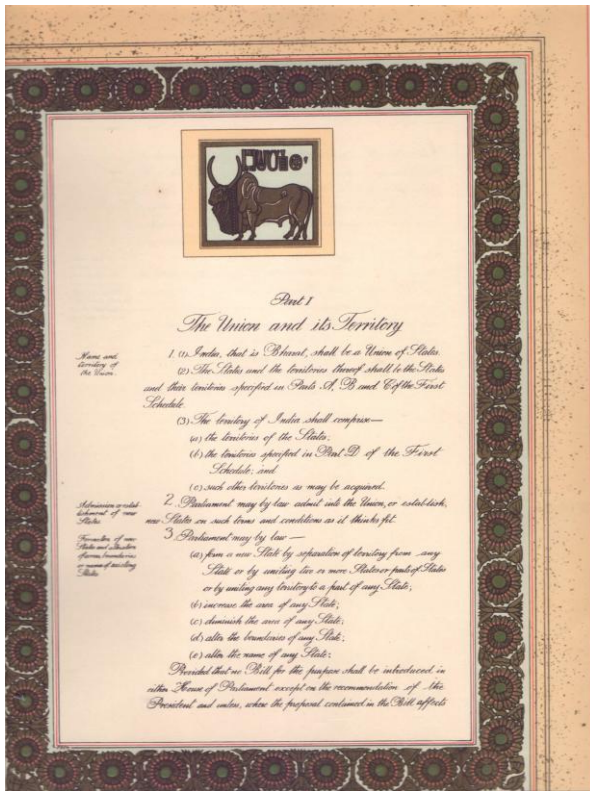 Part I
The Union and its Territory
Name and
territory of
the Union.
1. (1) India, that is Bharat, shall be a Union of States.
(2) The States and the territories thereof shall be the States
and their territories specified in Parts A, B and C of the First
Schedule.
(3) The territory of India shall comprise—
(a) the territories of the States;
(b) the territories specified in Part D of the First
Schedule; and
(c) such other territories as may be acquired.
Admission or estab-
lishment of new
States.
2. Parliament may by law admit into the Union, or establish,
new States on such terms and conditions as it thinks fit.
Formation of new
States and alteration
of areas, boundaries
or names of existing
States.
3. Parliament may by law—
(a) form a new State by separation of territory from any
State or by uniting two or more States or parts of States
or by uniting any territory to a part of any State;
(b) increase the area of any State;
(c) diminish the area of any State;
(d) alter the boundaries of any State;
(e) alter the name of any State;
Provided that no Bill for the purpose shall be introduced in
either House of Parliament except on the recommendation of the
President and unless, where the proposal contained in the Bill affects